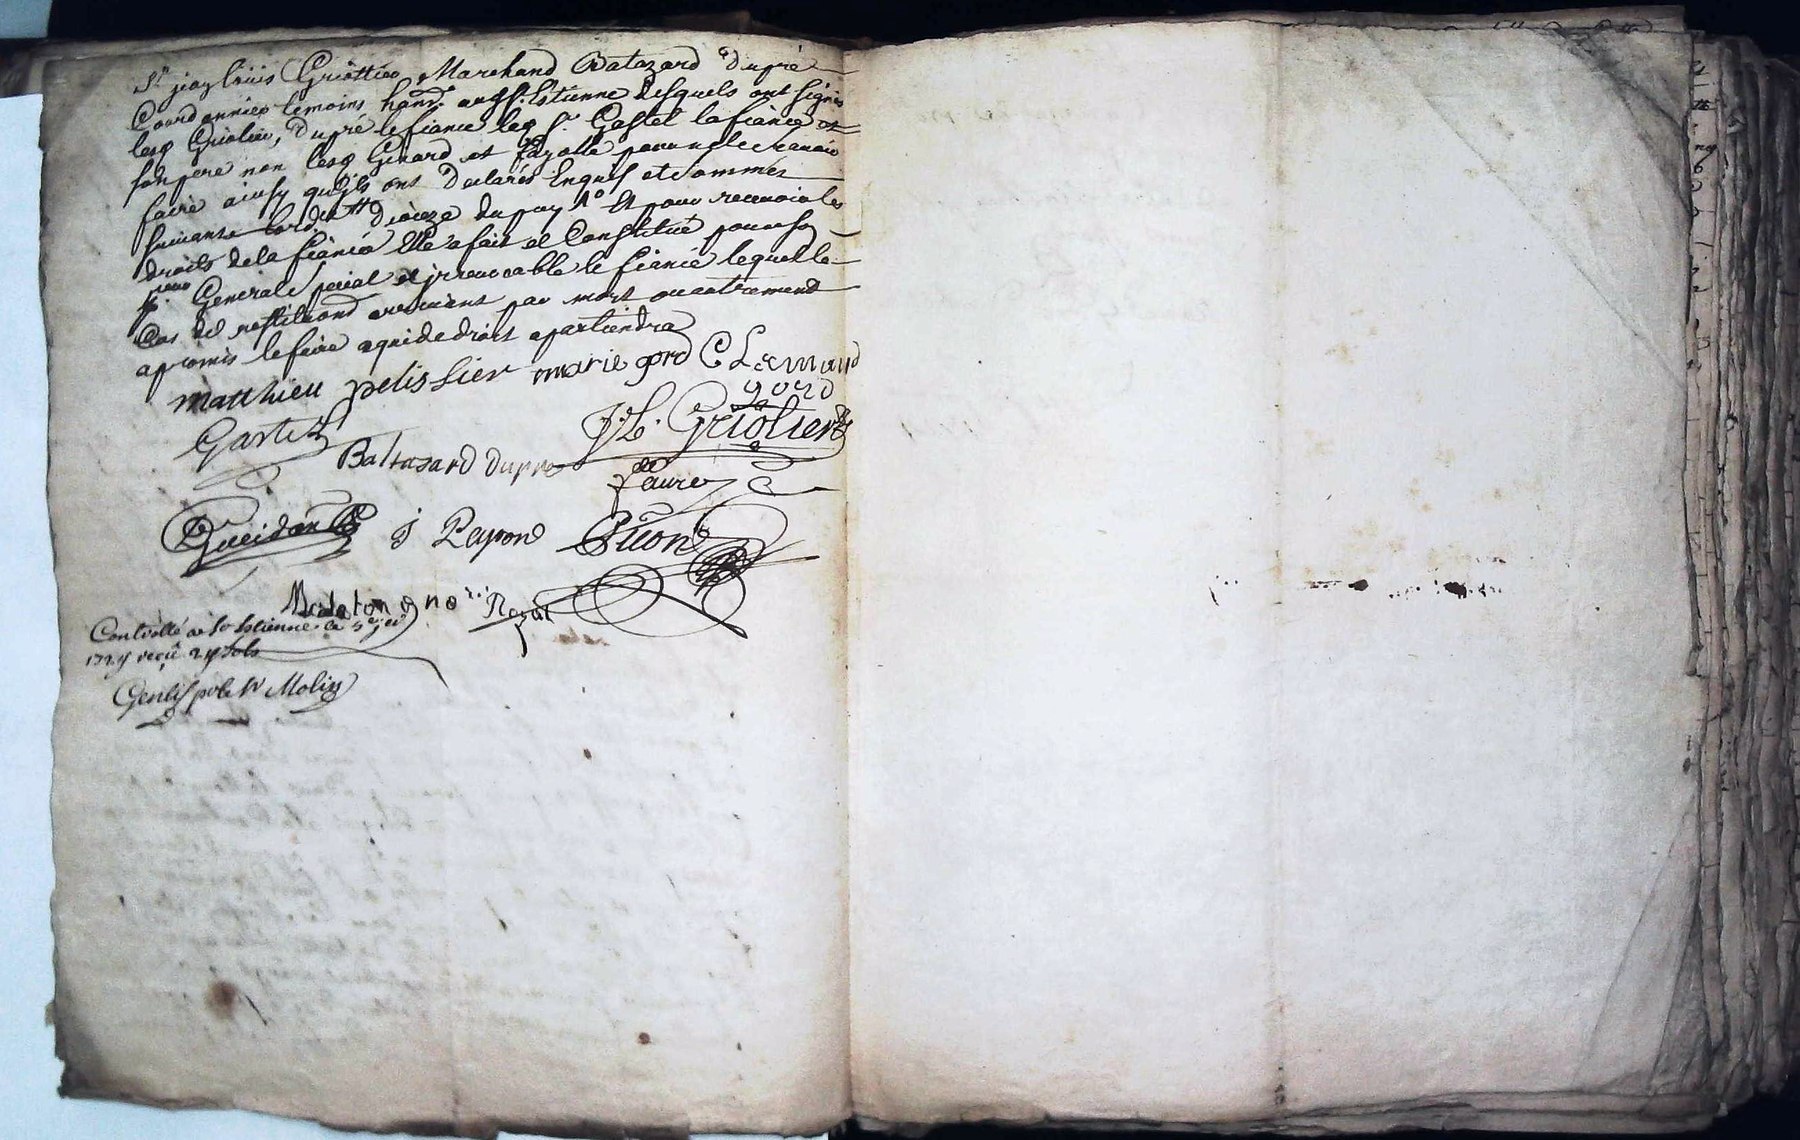 Sr jean louis Griottier Marchand Batazard dupré
Courdannier temoins hand. aud St. Estienne lesquels ont signés
lesq Griotier, dupré le fiance lesq Sr. Gastel la fiancé et
son pere non lesq Girard et fayolle pour ne le scavoir
faire ainsy qu'ils ont declarés Enquis et sommés
suivant lord. Dioceze du puy Et pour recevoir les
droits de la fiancée Elle a fait et Constitué pour son
pr. General special et jrrevocable le fiancé lequel le
Cas de restitution avenant par mort ou autrement
a promis le faire a qui de droit apartiendra
matthieu pelissier marie gord CLemand
gord
Gastel J.L. Griotier
Baltazard dupre
faure
Gueidan J Peyron Picon
notre. Royal
Controllé a St Estienne le 5e
reçu sols
Gentis pr le Sr Molin